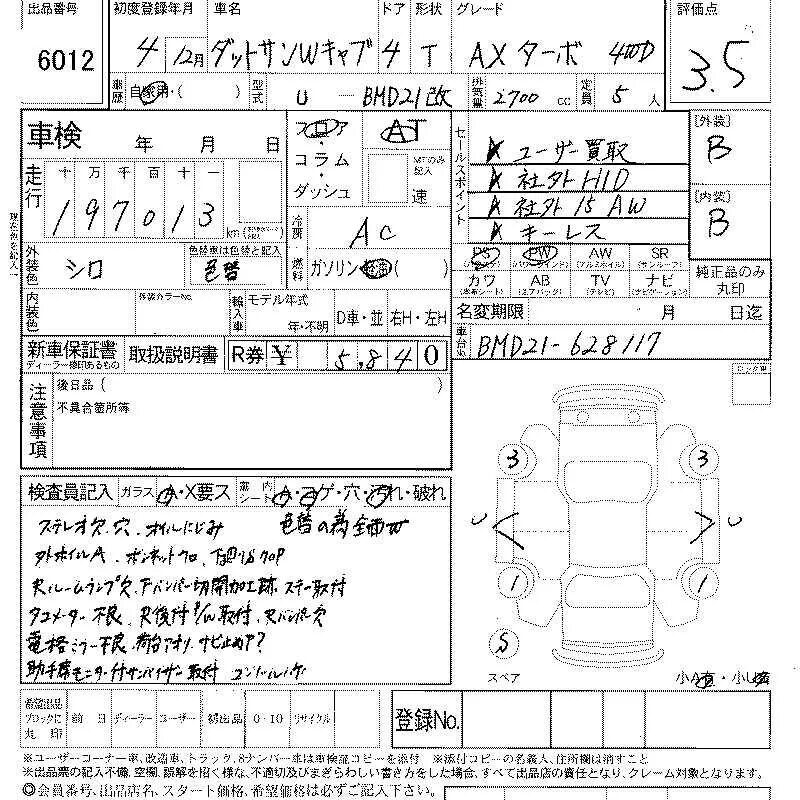 出品番号 初度登録年月 車名 ドア 形状 グレード 評価点
6012 4 12月 ダットサンWキャブ 4 T AXターボ 4WD 3.5
車歴 自家用・( ) 型式 U — BMD21改 排気量 2700 cc 定員 5 人
車検 年 月 日
フロア・コラム・ダッシュ AT MTのみ記入 速
セールスポイント
ユーザー買取
社外HID
社外15AW
キーレス
[外装] B
[内装] B
走行 十 万 千 百 十 一
197013 km
冷房 AC
外装色 シロ 色替車は色替と記入 色替
燃料 ガソリン・軽油( )
PS PW AW SR
(パワーウインド) (アルミホイル) (サンルーフ)
カワ AB TV ナビ
(エアバッグ) (テレビ) (ナビゲーション)
純正品のみ丸印
内装色 外装カラーNo. 輸入車 モデル年式 年・不明 D車・並 右H・左H
名変期限 月 日迄
新車保証書 取扱説明書 R券 ¥ 5,840
ディーラー捺印あるもの
車台No. BMD21-628117
注意事項
後日品 ( )
不具合箇所等
ロック車
検査員記入 ガラス A・X要ス 内シート コゲ・穴・汚れ・破れ
ステレオ欠、穴、オイルにじみ 色替の為全面W
外ホイルA、ボンネットクロ、
Rルームランプ欠、Fバンパー切開加工跡、ステー取付
タコメーター不良、R後付 取付、Rバンパー欠
電格ミラー不良、荷台アオリ、サビ止めP?
助手席モニター付サンバイザー取付
3 3
U U
1 1
S
スペア
小A有・小U有
希望出品ブロックに丸印 前日 ディーラー ユーザー 初出品 0-10 リサイクル
登録No.
※ユーザーコーナー車、改造車、トラック、8ナンバー車は車検証コピーを添付 ※添付コピーの名義人、住所欄は消すこと
※出品票の記入不備、空欄、誤解を招く様な、不適切及びまぎらわしい書き方をした場合、すべて出品店の責任となり、クレーム対象となります。
◎会員番号、出品店名、スタート価格、希望価格は必ずご記入下さい。